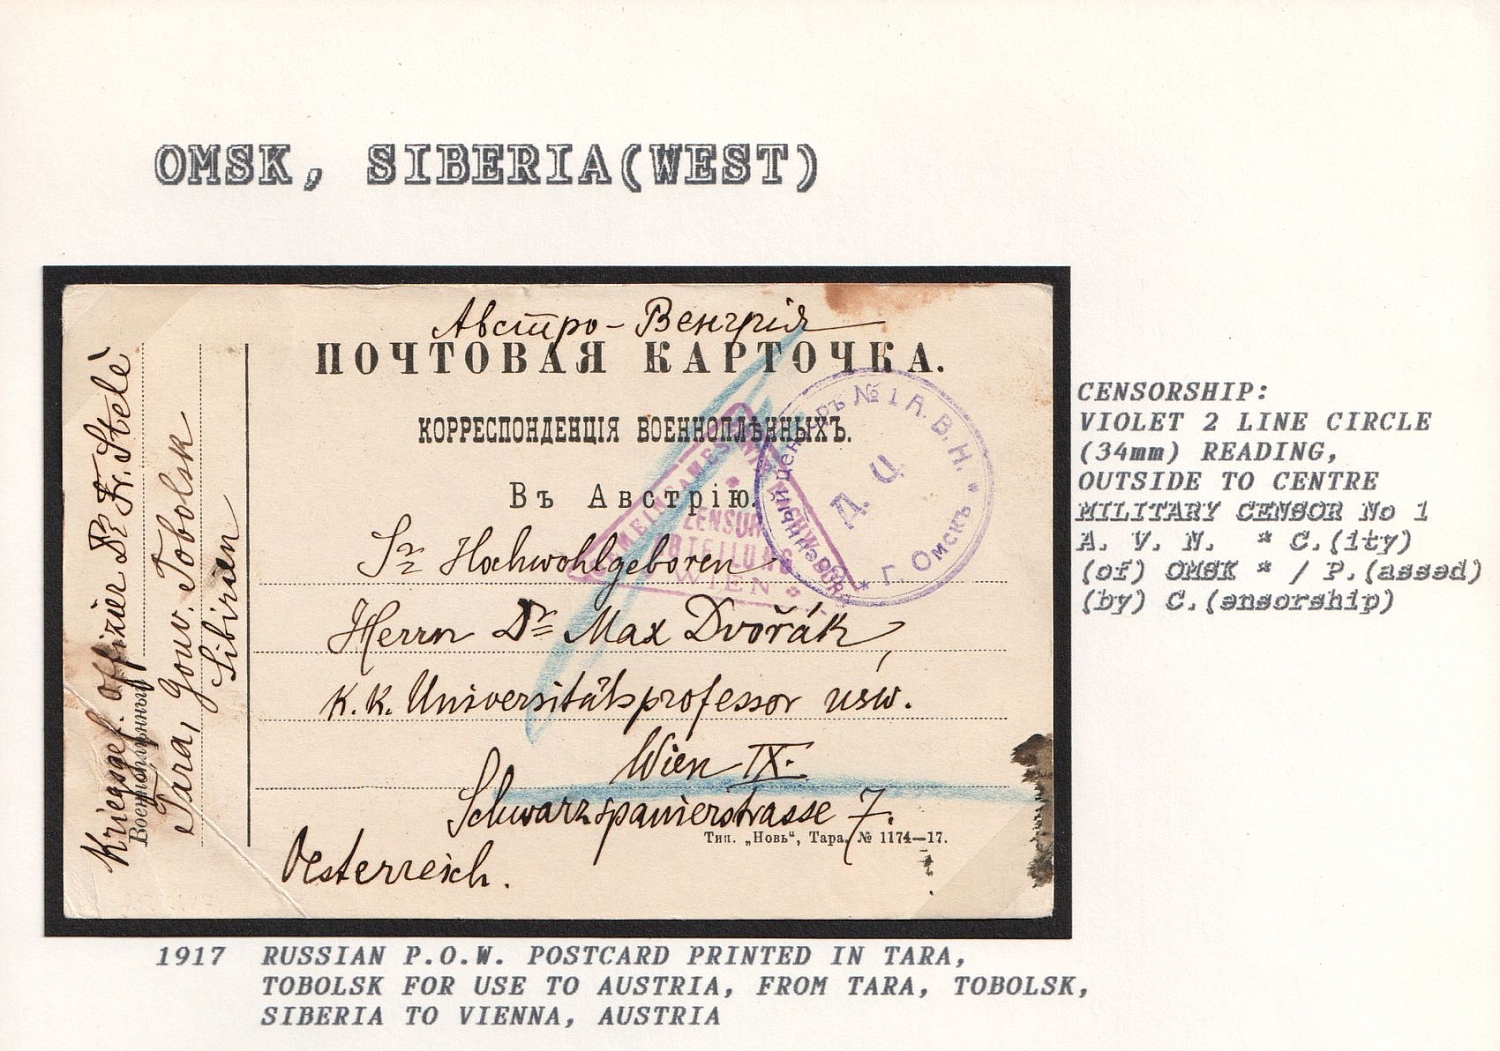 OMSK, SIBERIA(WEST)
Австро-Венгрія
ПОЧТОВАЯ КАРТОЧКА.
КОРРЕСПОНДЕНЦІЯ ВОЕННОПЛѢННЫХЪ.
Въ Австрію.
Sr Hochwohlgeboren
Herrn Dr Max Dvořák,
K. K. Universitätsprofessor usw.
Wien IX.
Schwarzspanierstrasse 7.
Тип. „Новь“, Тара, № 1174—17.
Oesterreich.
Kriegsgef. Offizier Dr Fr. Stelè
Военноплѣнный
Tara, Gouv. Tobolsk
Sibirien
Военный цензоръ № 1 А. В. Н. * Г. Омскъ *
Д. Ц.
ZENSUR
ABTEILUNG
WIEN
CENSORSHIP:
VIOLET 2 LINE CIRCLE
(34mm) READING,
OUTSIDE TO CENTRE
MILITARY CENSOR No 1
A. V. N. * C.(ity)
(of) OMSK * / P.(assed)
(by) C.(ensorship)
1917 RUSSIAN P.O.W. POSTCARD PRINTED IN TARA,
TOBOLSK FOR USE TO AUSTRIA, FROM TARA, TOBOLSK,
SIBERIA TO VIENNA, AUSTRIA